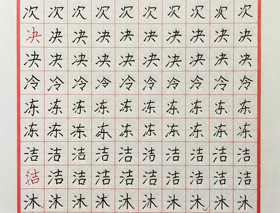 次次次次次次次次次
决决决决决决决决决
决决决决决决决决决
冷冷冷冷冷冷冷冷冷
冻冻冻冻冻冻冻冻冻
冻冻冻冻冻冻冻冻冻
洁洁洁洁洁洁洁洁洁
洁洁洁洁洁洁洁洁洁
沐沐沐沐沐沐沐沐沐